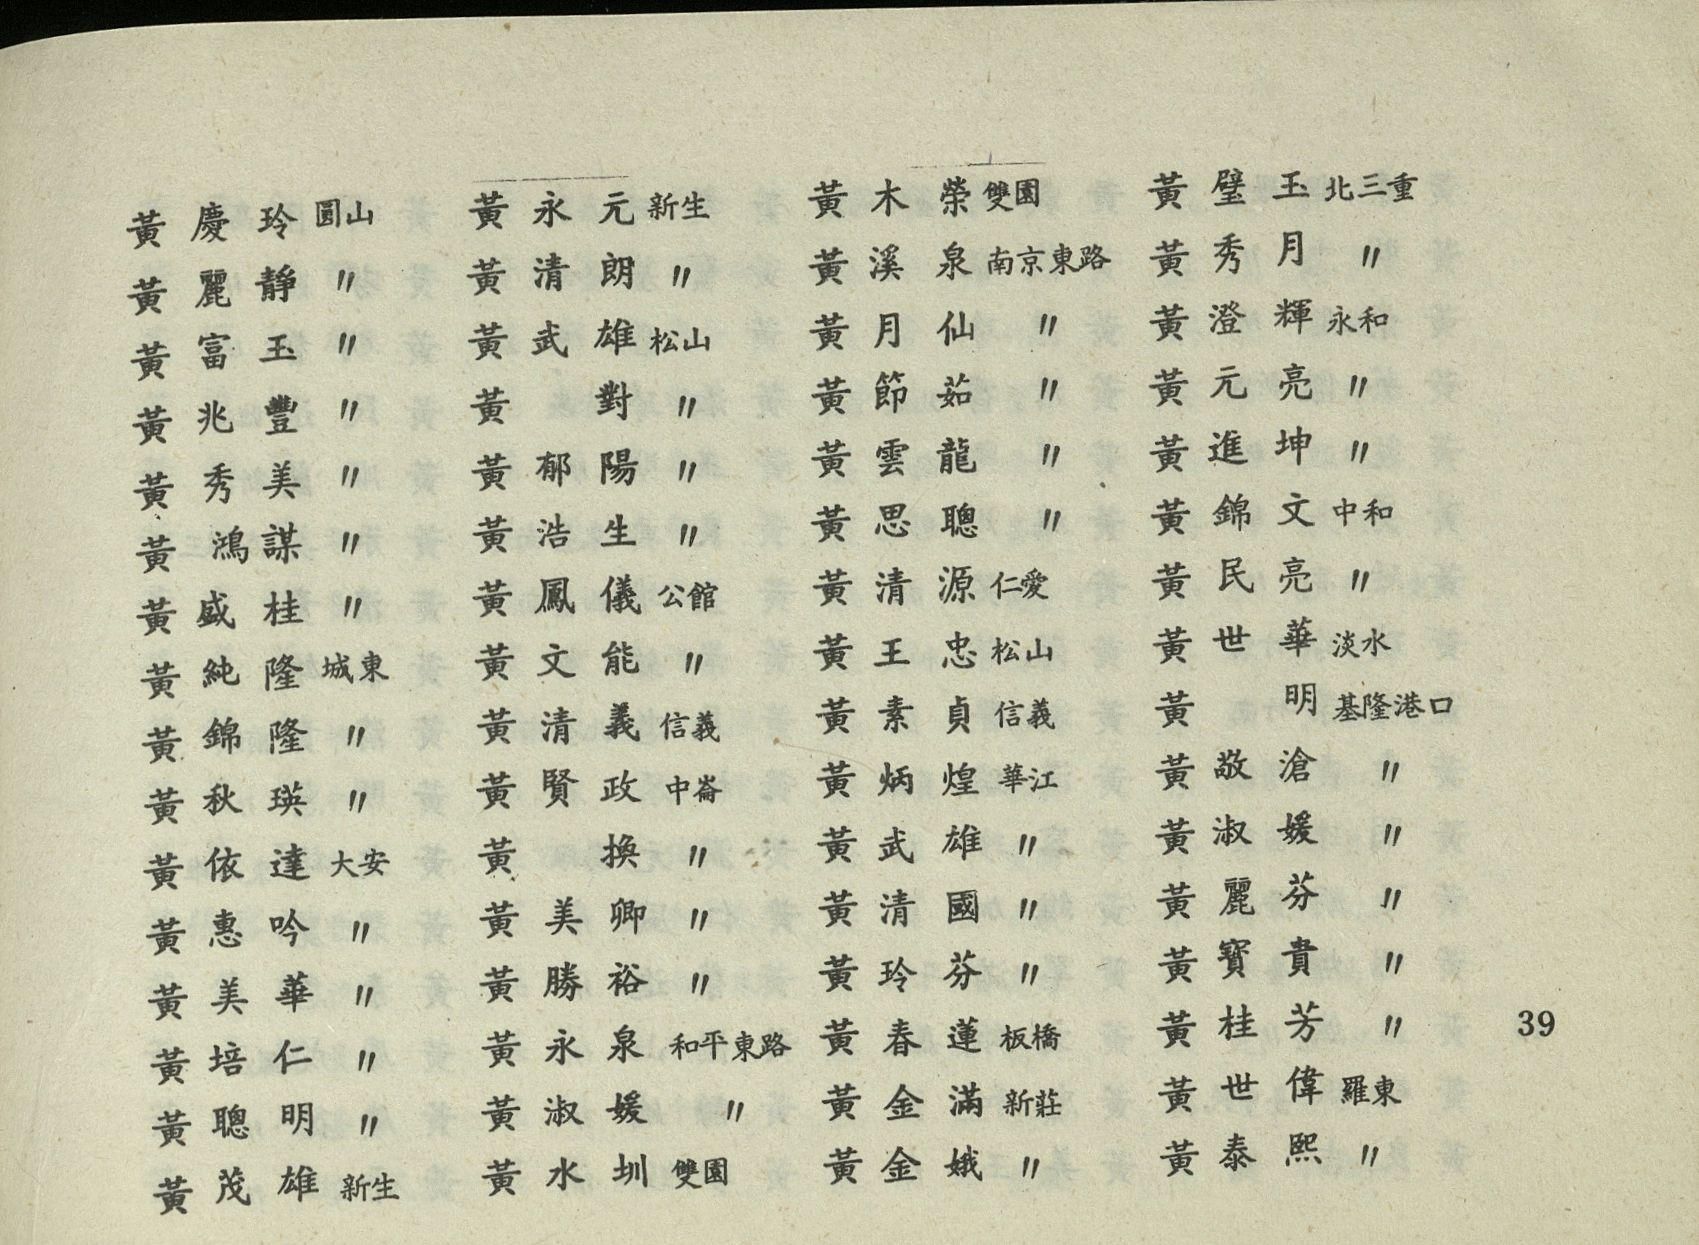 黃慶玲 圓山
黃麗靜 〃
黃富玉 〃
黃兆豐 〃
黃秀美 〃
黃鴻謀 〃
黃盛桂 〃
黃純隆 城東
黃錦隆 〃
黃秋瑛 〃
黃依達 大安
黃惠吟 〃
黃美華 〃
黃培仁 〃
黃聰明 〃
黃茂雄 新生
黃永元 新生
黃清朗 〃
黃武雄 松山
黃　對 〃
黃郁陽 〃
黃浩生 〃
黃鳳儀 公館
黃文能 〃
黃清義 信義
黃賢政 中崙
黃　換 〃
黃美卿 〃
黃勝裕 〃
黃永泉 和平東路
黃淑媛 〃
黃水圳 雙園
黃木榮 雙園
黃溪泉 南京東路
黃月仙 〃
黃節茹 〃
黃雲龍 〃
黃思聰 〃
黃清源 仁愛
黃王忠 松山
黃素貞 信義
黃炳煌 華江
黃武雄 〃
黃清國 〃
黃玲芬 〃
黃春蓮 板橋
黃金滿 新莊
黃金娥 〃
黃璧玉 北三重
黃秀月 〃
黃澄輝 永和
黃元亮 〃
黃進坤 〃
黃錦文 中和
黃民亮 〃
黃世華 淡水
黃　明 基隆港口
黃敬滄 〃
黃淑媛 〃
黃麗芬 〃
黃寶貴 〃
黃桂芳 〃
黃世偉 羅東
黃泰熙 〃
39